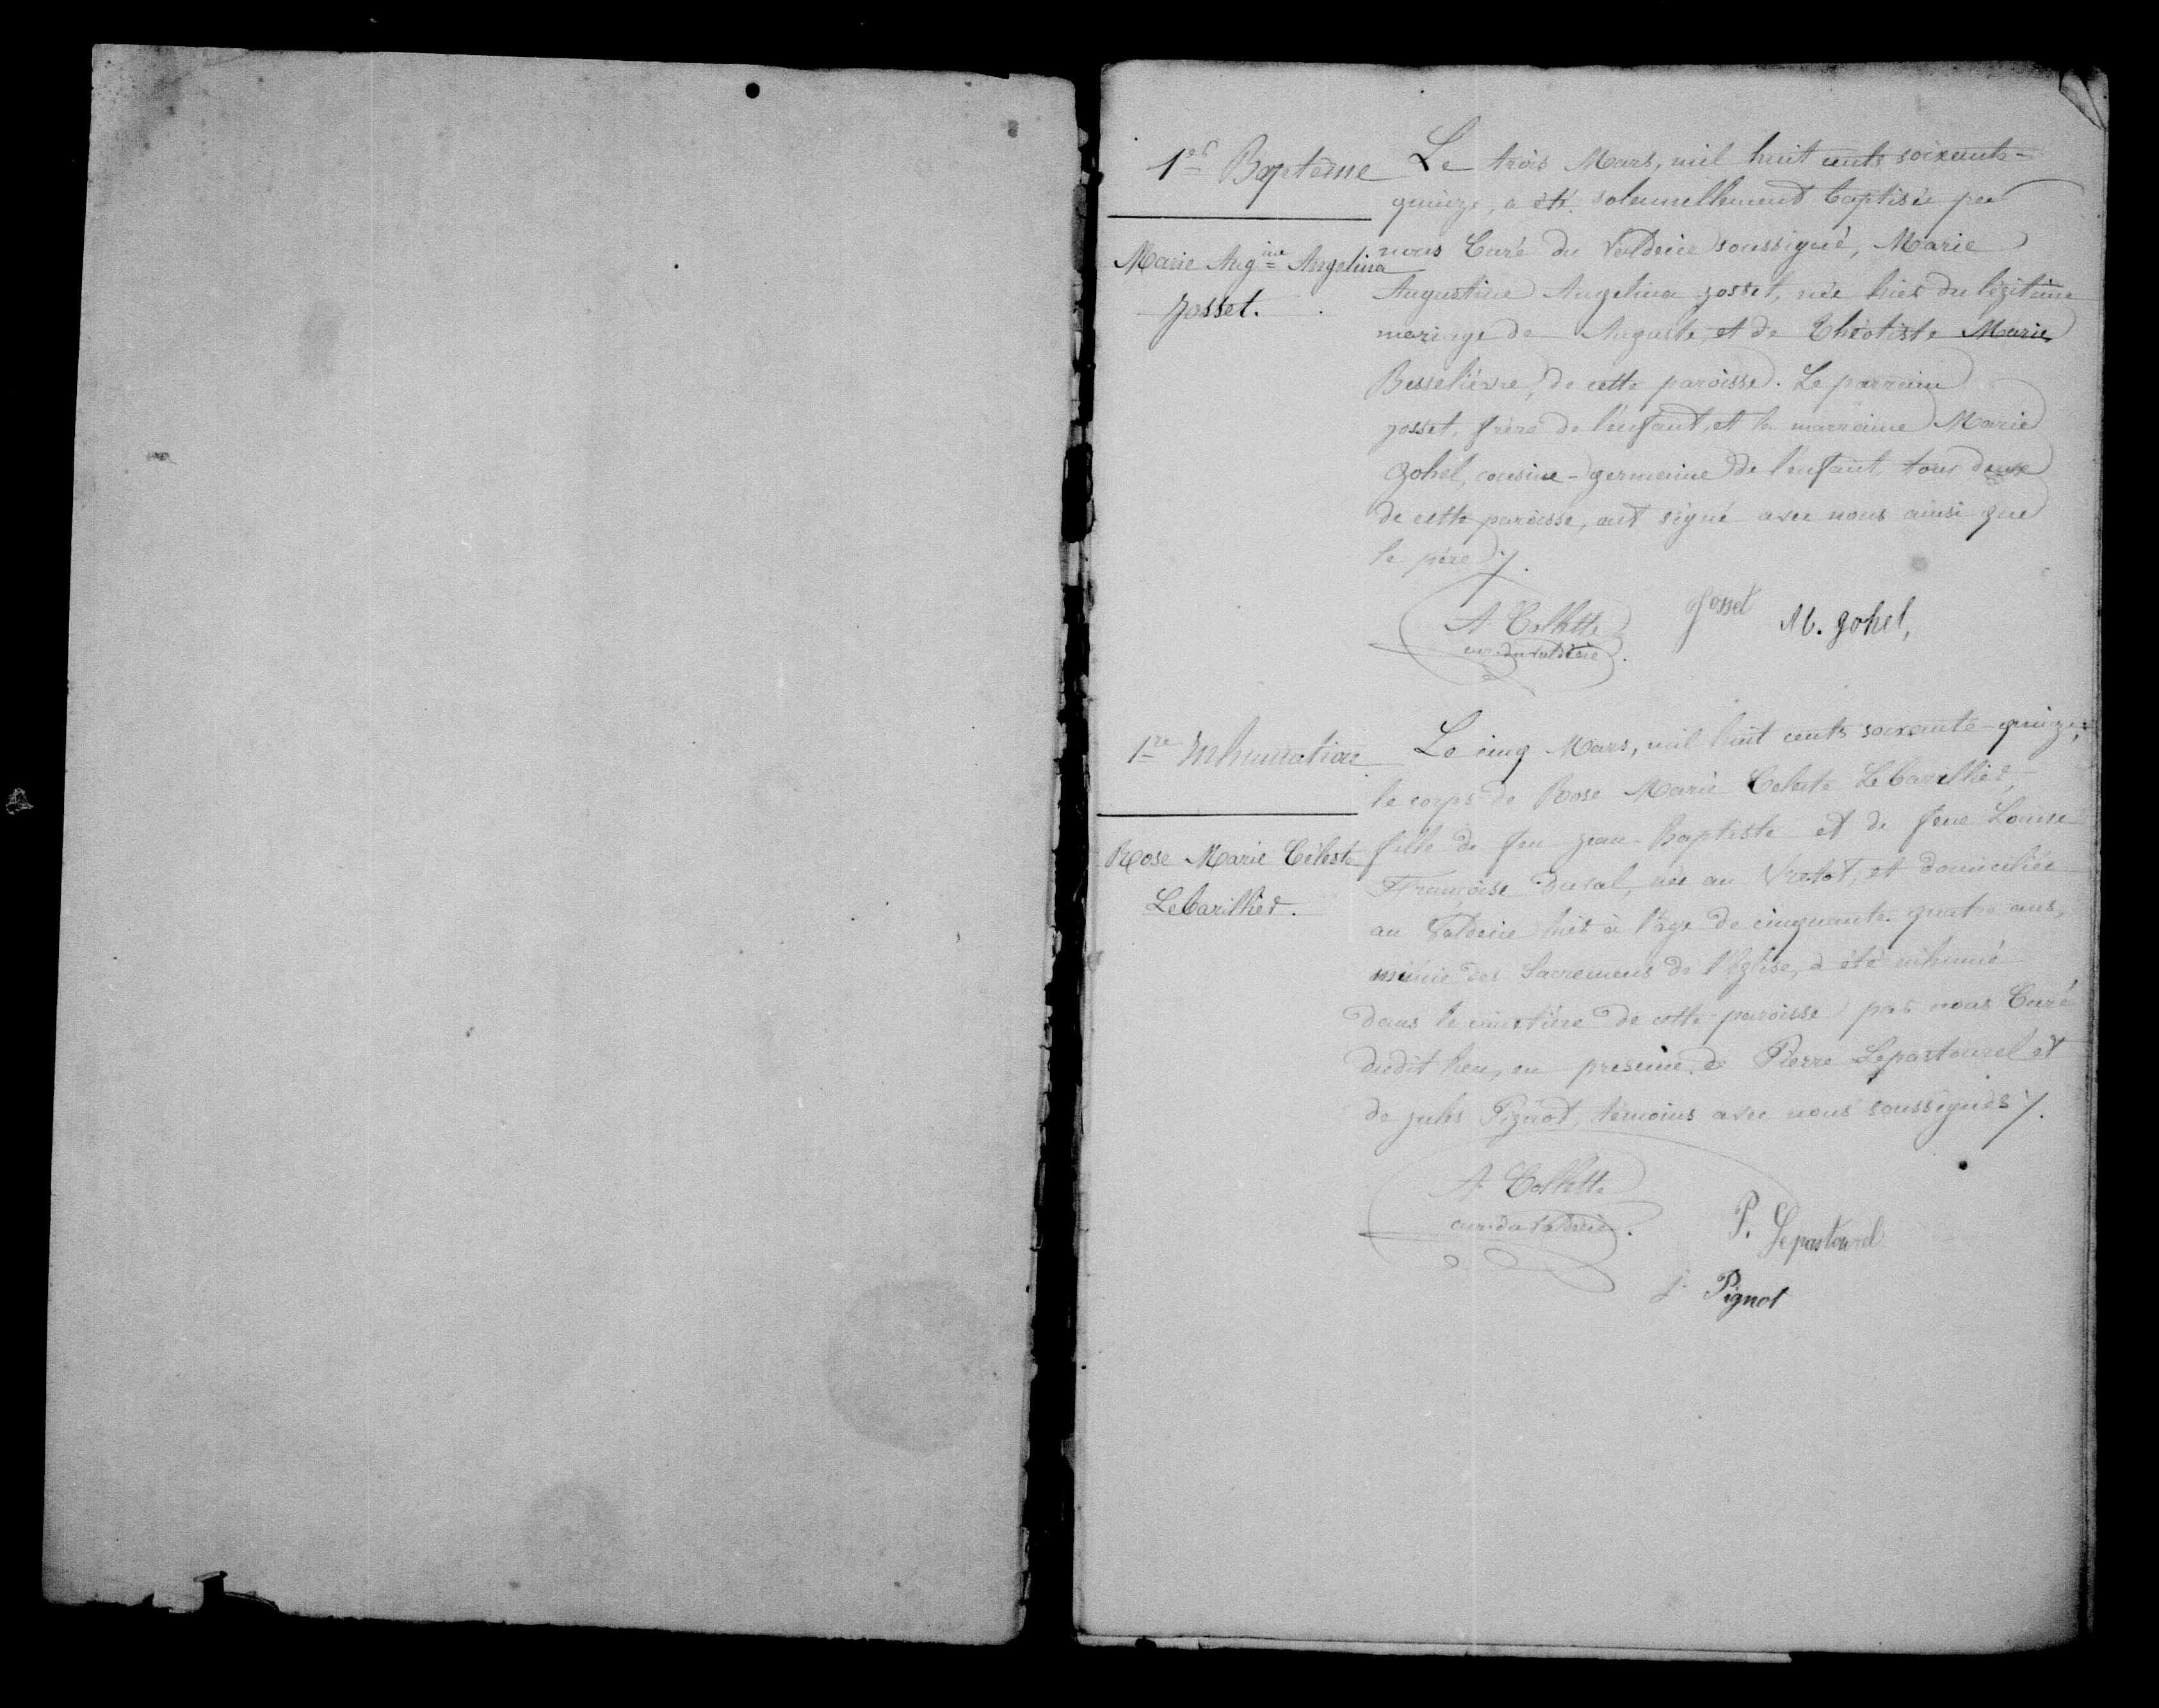 1er Baptême
Marie Aug=ine Angelina
Josset.
Le trois Mars, mil huit cents soixante-
quinze, a été solennellement baptisée par
nous Curé du Valdecie soussigné, Marie
Augustine Angelina Josset, née hier du légitime
mariage de Auguste, et de Théotiste Marie
Besselièvre, de cette paroisse. Le parrain
Josset, frère de l'enfant, et la marraine Marie
Gohel, cousine-germaine de l'enfant, tous deux
de cette paroisse, ont signé avec nous ainsi que
le père ./.
A. Collette
curé du Valdecie.
Josset
M. Gohel,
1re Inhumation
Rose Marie Céleste
LeCarillier.
Le cinq Mars, mil huit cents soixante-quinze,
le corps de Rose Marie Celeste LeCarillier,
fille de feu Jean-Baptiste et de feue Louise
Françoise Duval, née au Vretot, et domiciliée
au Valdecie hier à l'âge de cinquante-quatre ans,
munie des Sacremens de l'Eglise, a été inhumé
dans le cimetière de cette paroisse par nous Curé
dudit lieu, en présence de Pierre Lepastourel et
de Jules Pignot, témoins avec nous soussignés ./.
A. Collette
curé du Valdecie.
P. Lepastourel
J. Pignot